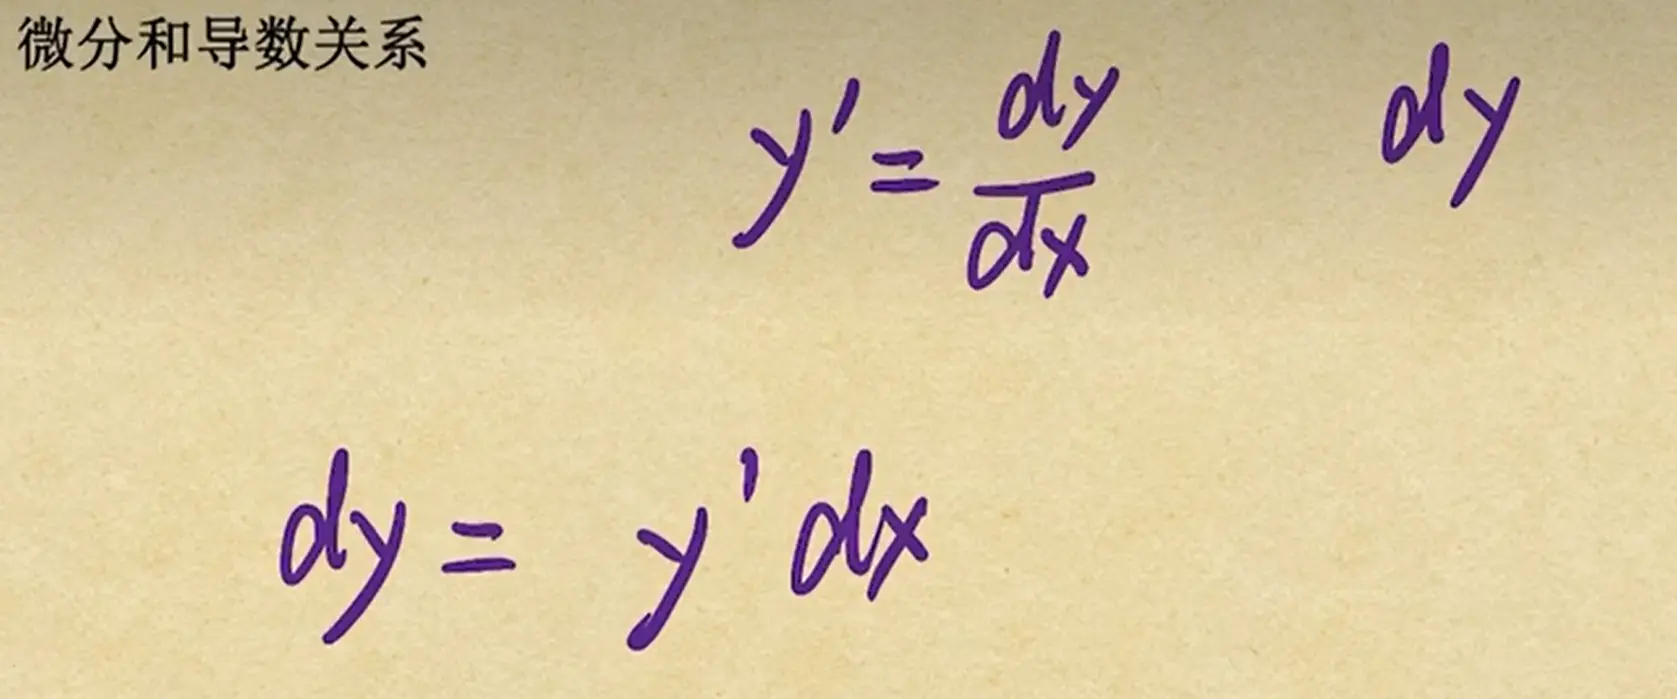 微分和导数关系
y' = dy/dx dy
dy = y' dx